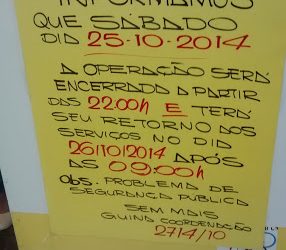 INFORMAMOS
QUE SÁBADO
DIA 25-10-2014
A OPERAÇÃO SERÁ
ENCERRADA A PARTIR
DAS 22:00h E TERÁ
SEU RETORNO DOS
SERVIÇOS NO DIA
26/10/2014 APÓS
AS 09:00h
OBS. PROBLEMA DE
SEGURANÇA PUBLICA
SEM MAIS
COORDENAÇÃO
2714/10